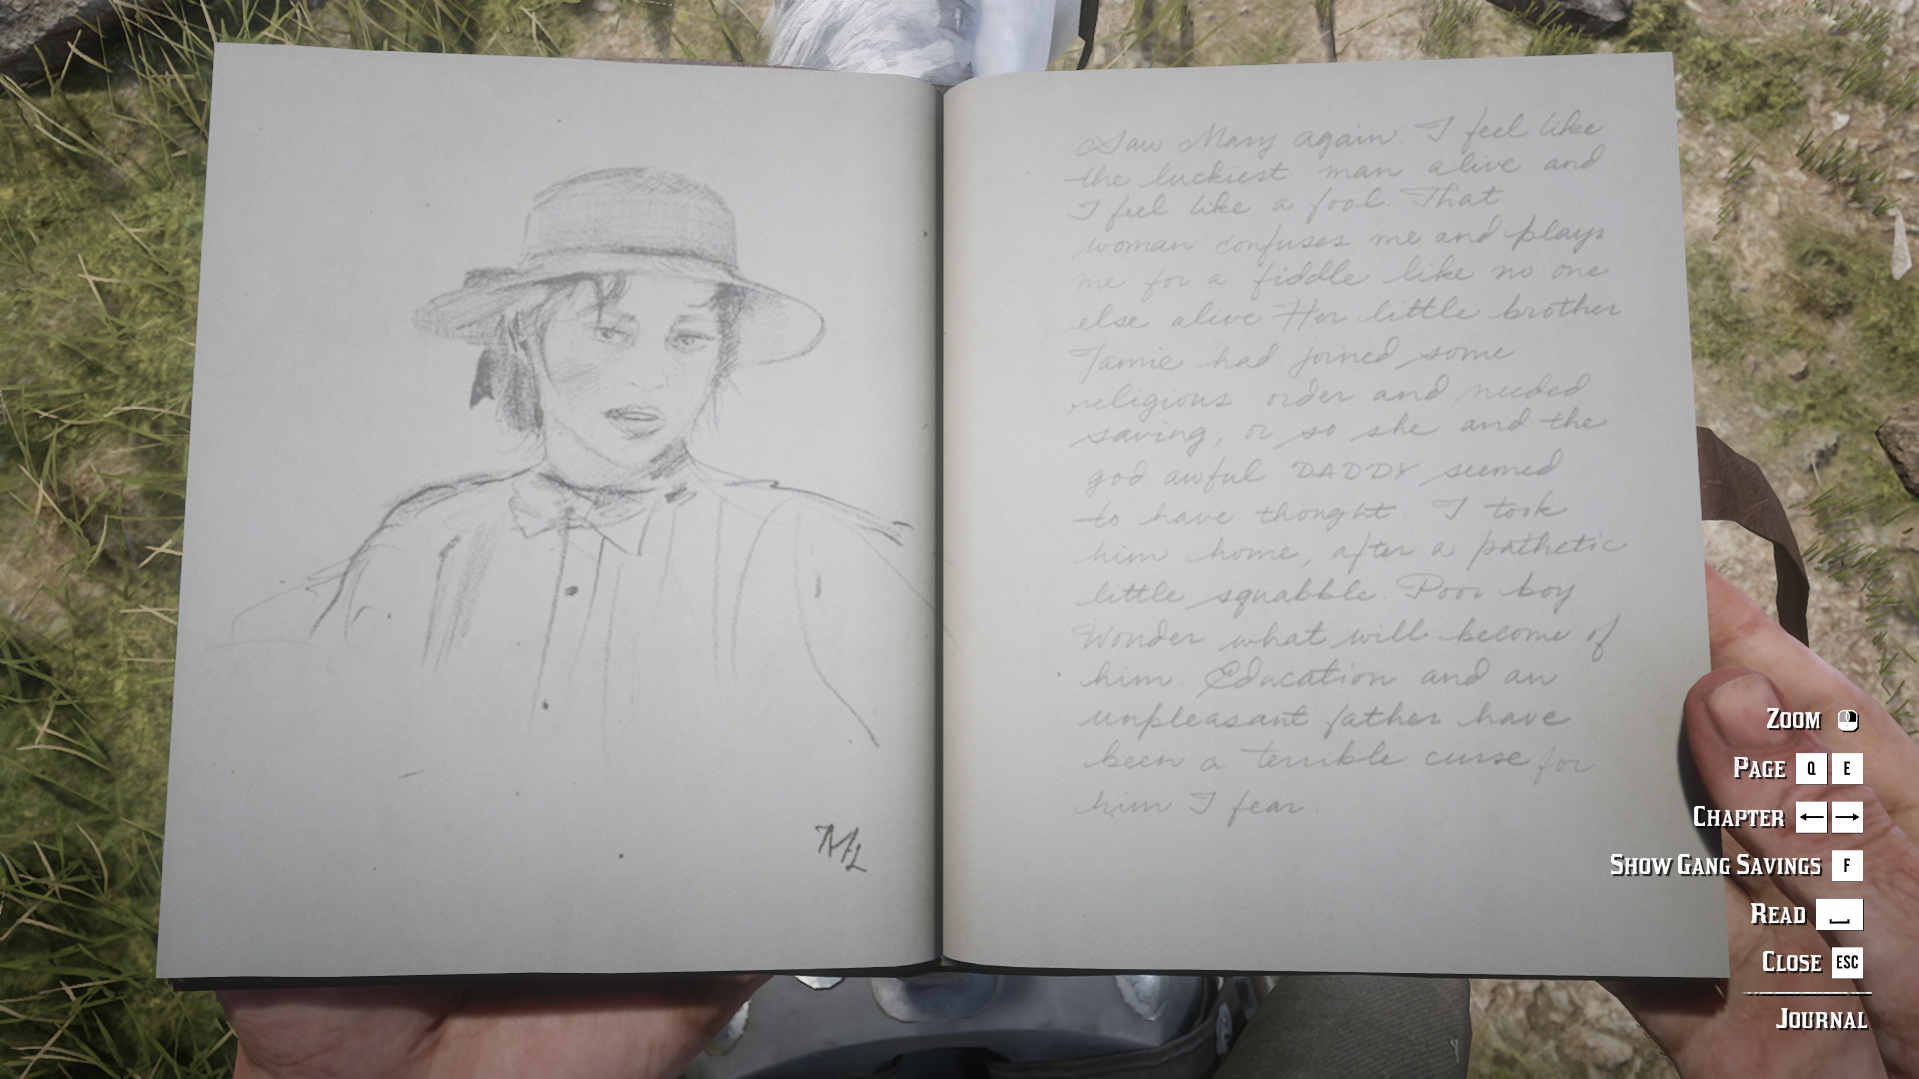 Saw Mary again. I feel like
the luckiest man alive and
I feel like a fool. That
woman confuses me and plays
me for a fiddle like no one
else alive Her little brother
Jamie had joined some
religious order and needed
saving, or so she and the
god awful DADDY seemed
to have thought. I took
him home, after a pathetic
little squabble. Poor boy
Wonder what will become of
him. Education and an
unpleasant father have
been a terrible curse for
him I fear.
ML
ZOOM
PAGE Q E
CHAPTER ← →
SHOW GANG SAVINGS F
READ
CLOSE ESC
JOURNAL